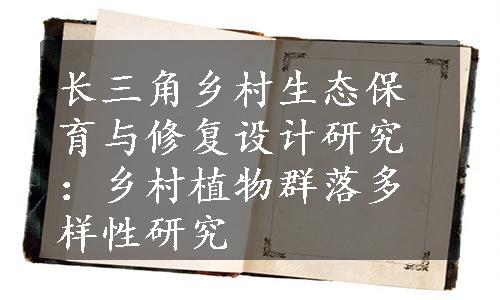 长三角乡村生态保
育与修复设计研究
：乡村植物群落多
样性研究